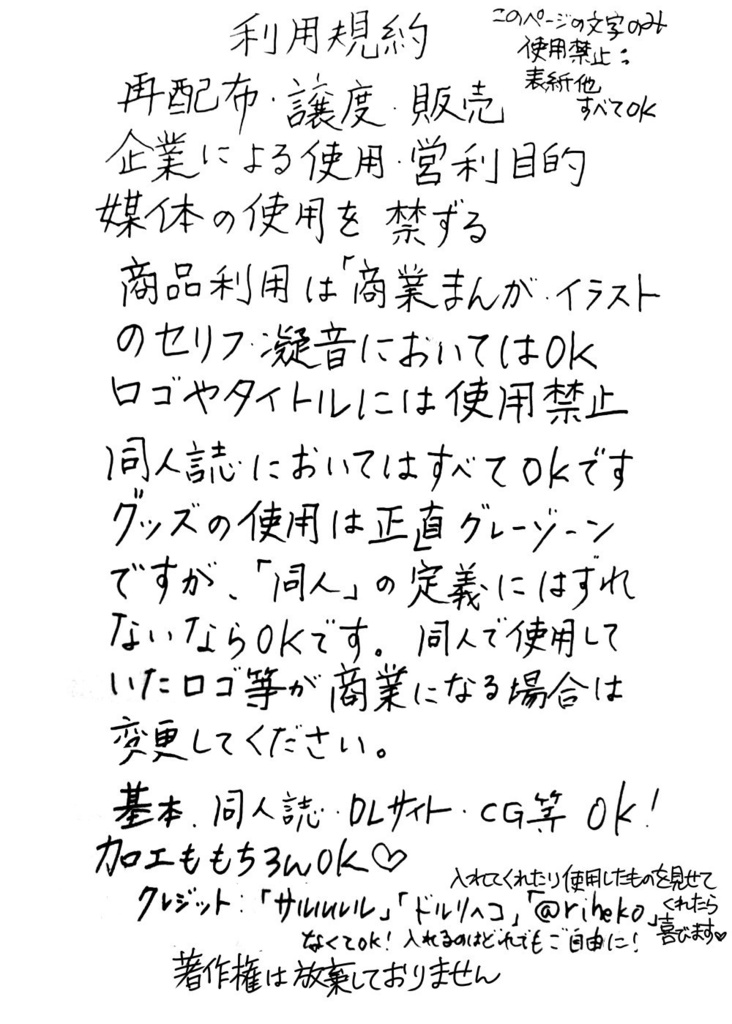 利用規約
このページの文字のみ
使用禁止:
表紙他
すべてOK
再配布・譲度・販売
企業による使用・営利目的
媒体の使用を禁ずる
商品利用は「商業まんが・イラスト
のセリフ・凝音においてはOK
ロゴやタイトルには使用禁止
同人誌においてはすべてOKです
グッズの使用は正直グレーゾーン
ですが、「同人」の定義にはずれ
ないならOKです。同人で使用して
いたロゴ等が商業になる場合は
変更してください。
基本、同人誌・DLサイト・CG等 OK!
加工ももちろんOK♡
入れてくれたり使用したものを見せて
くれたら
喜びます♥
クレジット:「サルルルル」「ドルリヘコ」「@riheko」
なくてOK! 入れるのはどれでもご自由に!
著作権は放棄しておりません